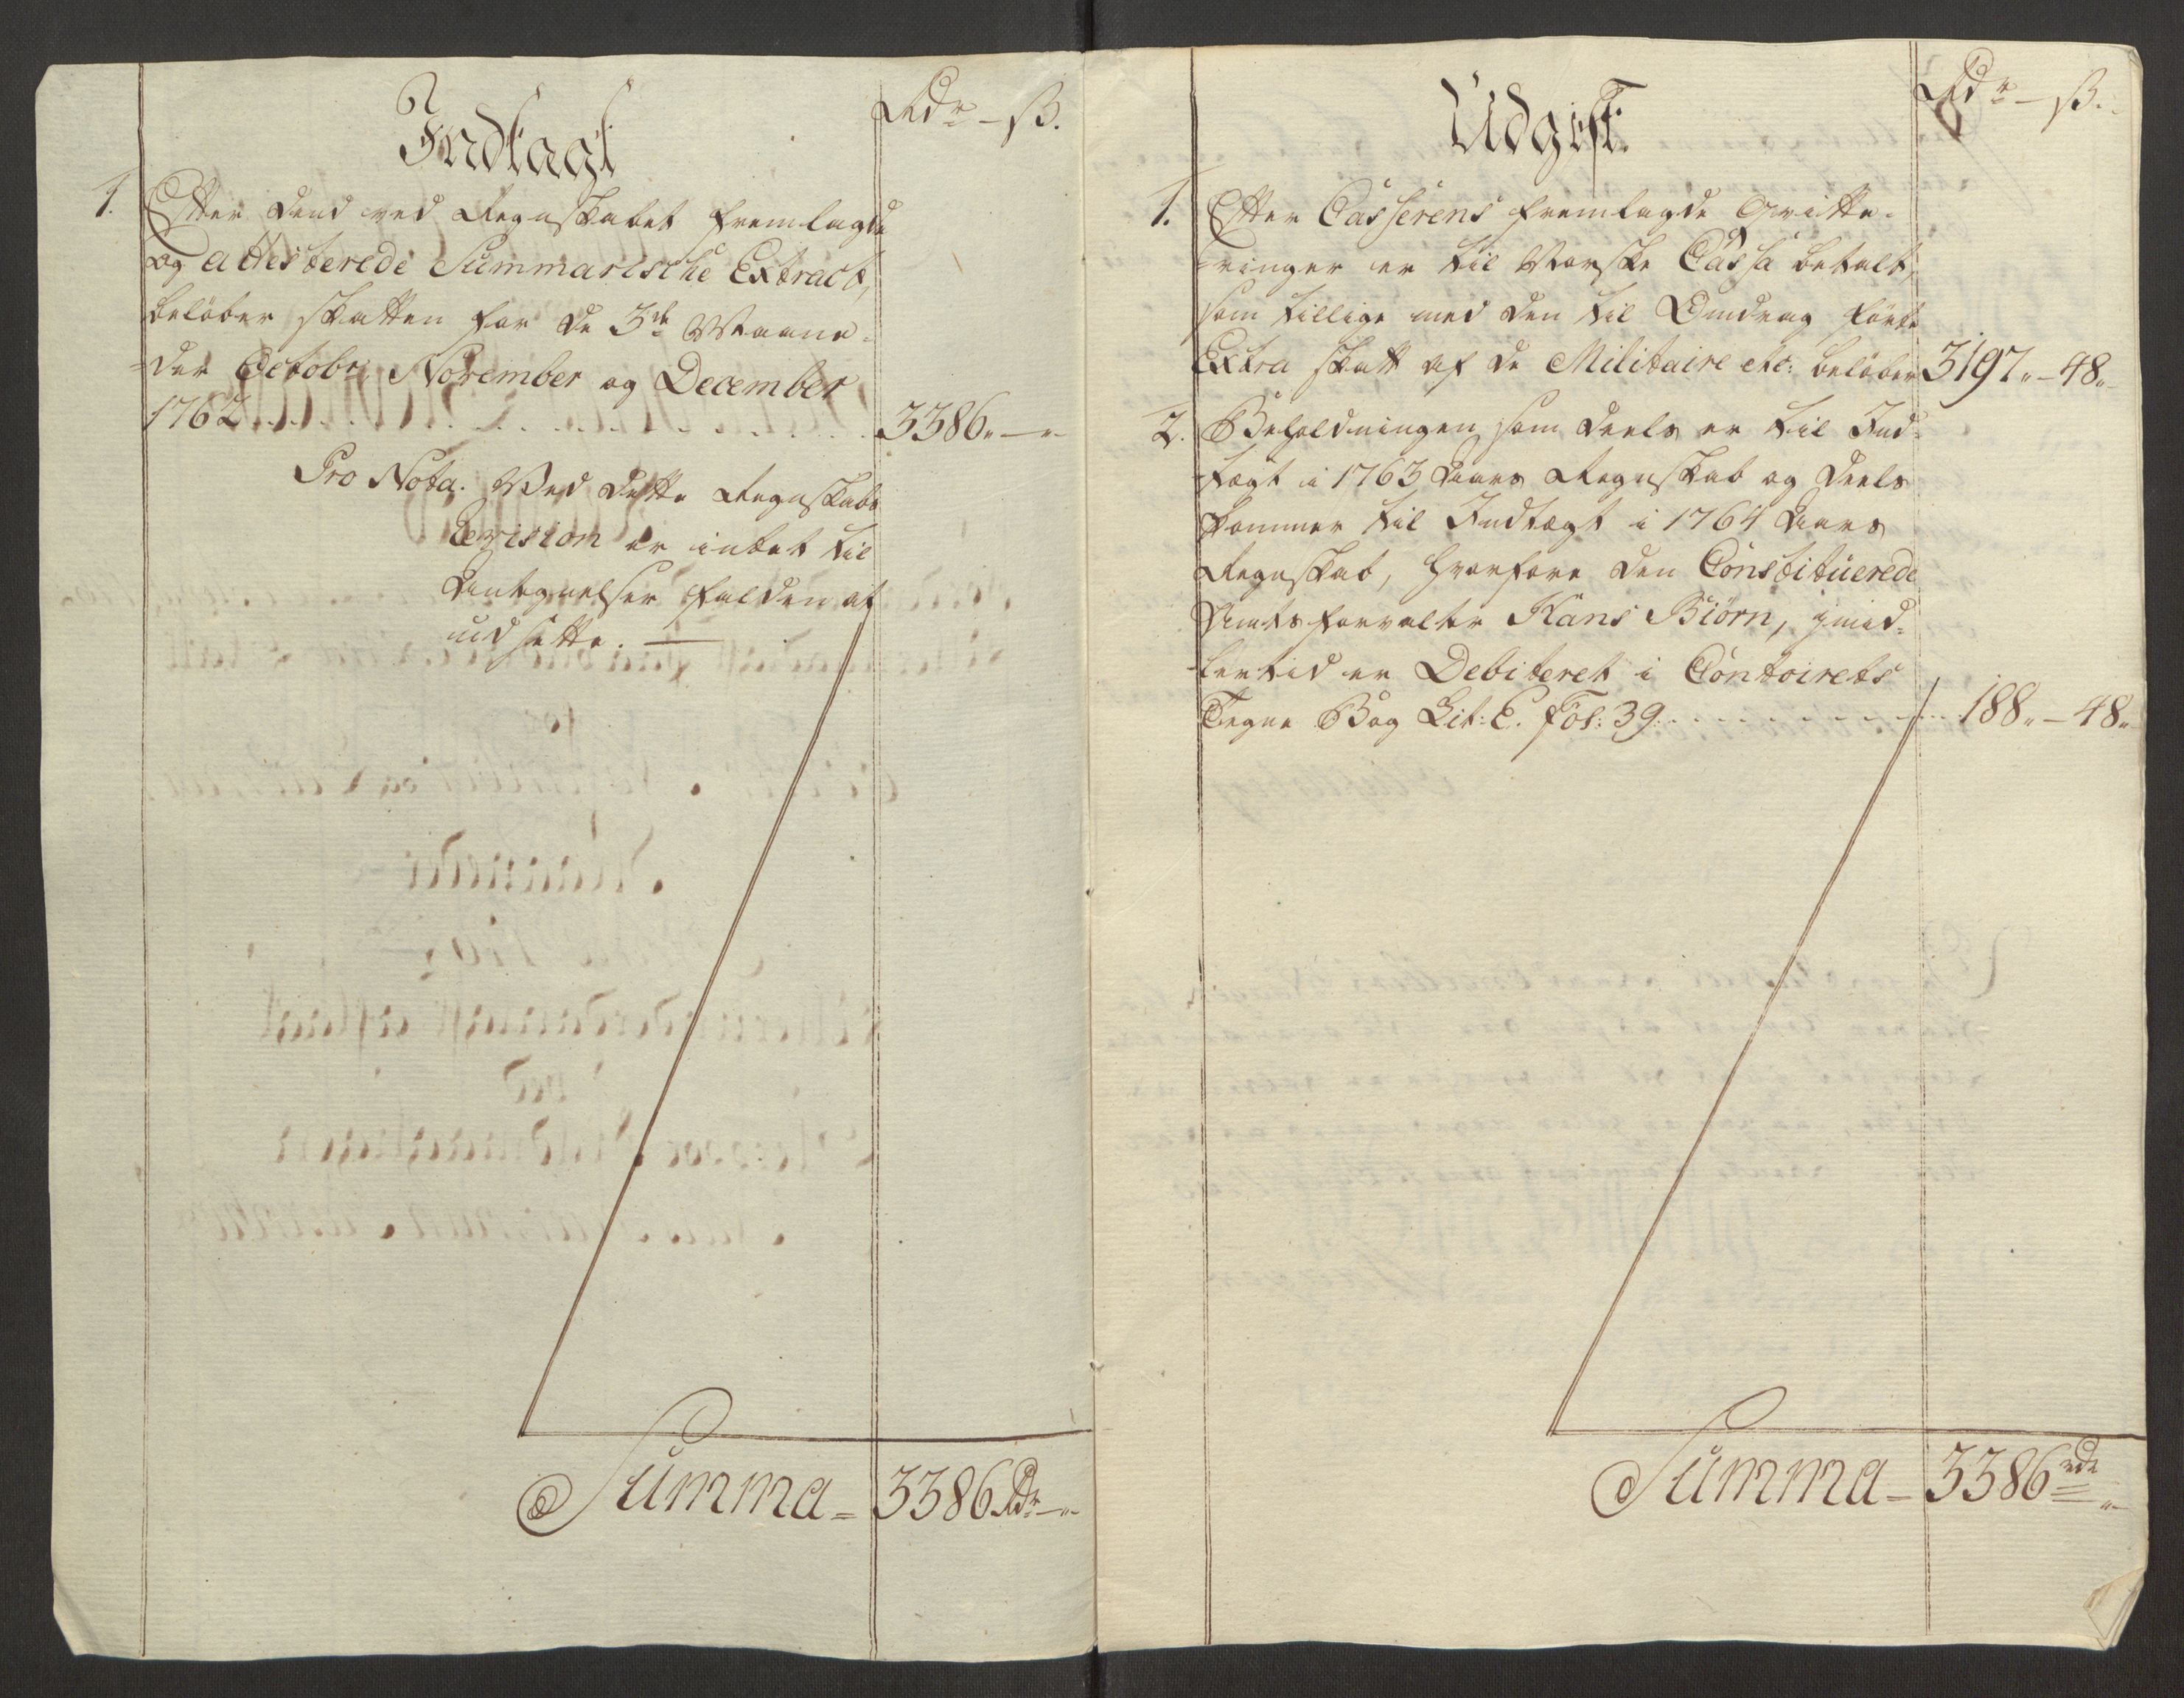 Indtægt
Rdr – ß.
1. Efter dend ved Regnskabet fremlagde
og attesterede Summariske Extract,
beløber skatten for de 3de Maane-
der Octobr, November og December
1762 . . . . . . . . . . . . 3386„ – „
Pro Nota. Ved dette Regnskabs
Revision er intet til
Antegnelser falden at
udsette. —
Summa = 3386 Rdr – „
Udgift.
Rdr – ß.
1. Efter Casserens fremlagde Qvitte-
ringer er til Norske Cassa betalt,
som tillige med den til Omdrag førte
Extra skatt af de Militaire etc: beløber 3197„ – 48„
2. Beholdningen som deels er til Ind-
tægt i 1763 Aars Regnskab og deels
kommer til Indtægt i 1764 Aars
Regnskab, hvorfore den Constituerede
Amtsforvalter Hans Biörn, imid-
lertid er Debiteret i Contoirets
Tegne Bog Lit: E. Fol: 39. . . . . . . . . 188„ – 48„
Summa – 3386 rdr „